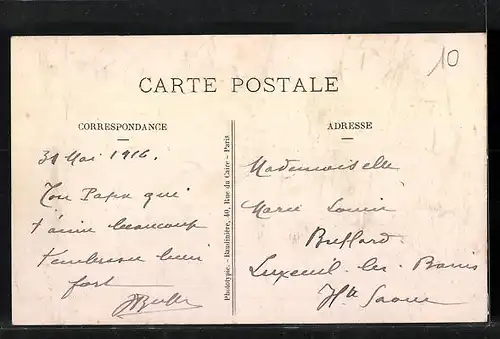 10
CARTE POSTALE
CORRESPONDANCE
ADRESSE
31 Mai 1916.
Ton Papa qui
t'aime beaucoup
t'embrasse bien
fort
Phototypie. - Baudinière, 40, Rue du Caire - Paris
Mademoiselle
Marie Louise
Buffard
Luxeuil-les-Bains
Hte Saone